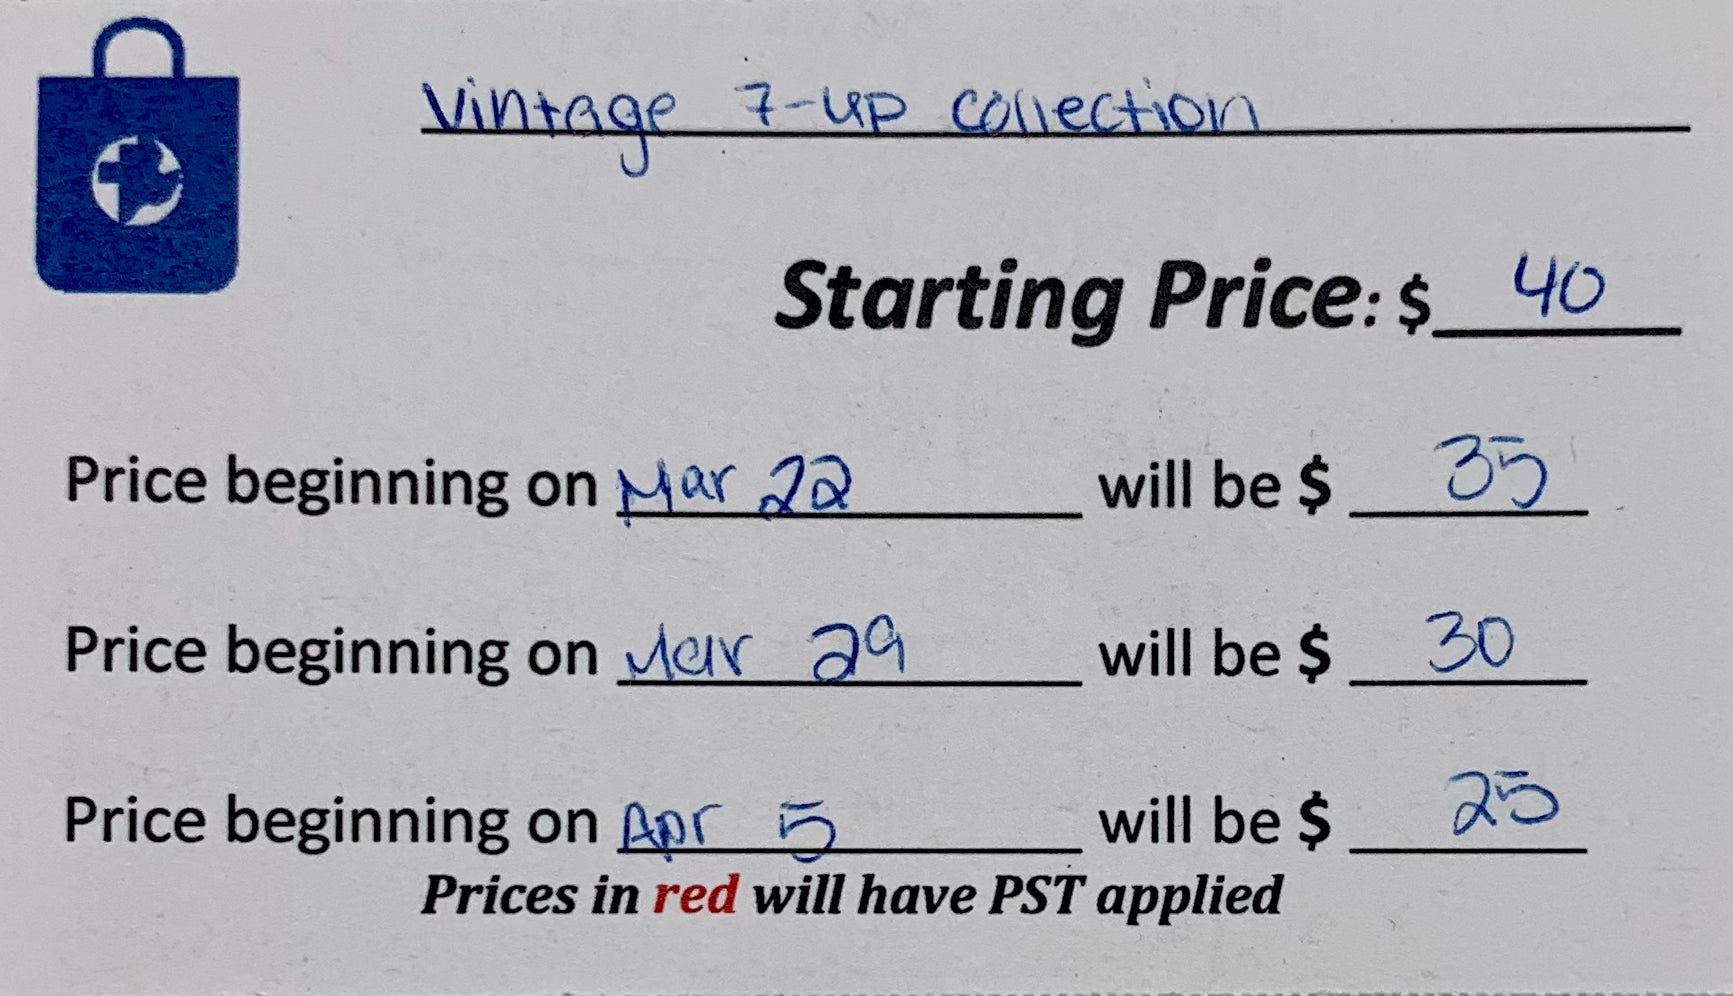 Vintage 7-up collection
Starting Price: $ 40
Price beginning on Mar 22 will be $ 35
Price beginning on Mar 29 will be $ 30
Price beginning on Apr 5 will be $ 25
Prices in red will have PST applied